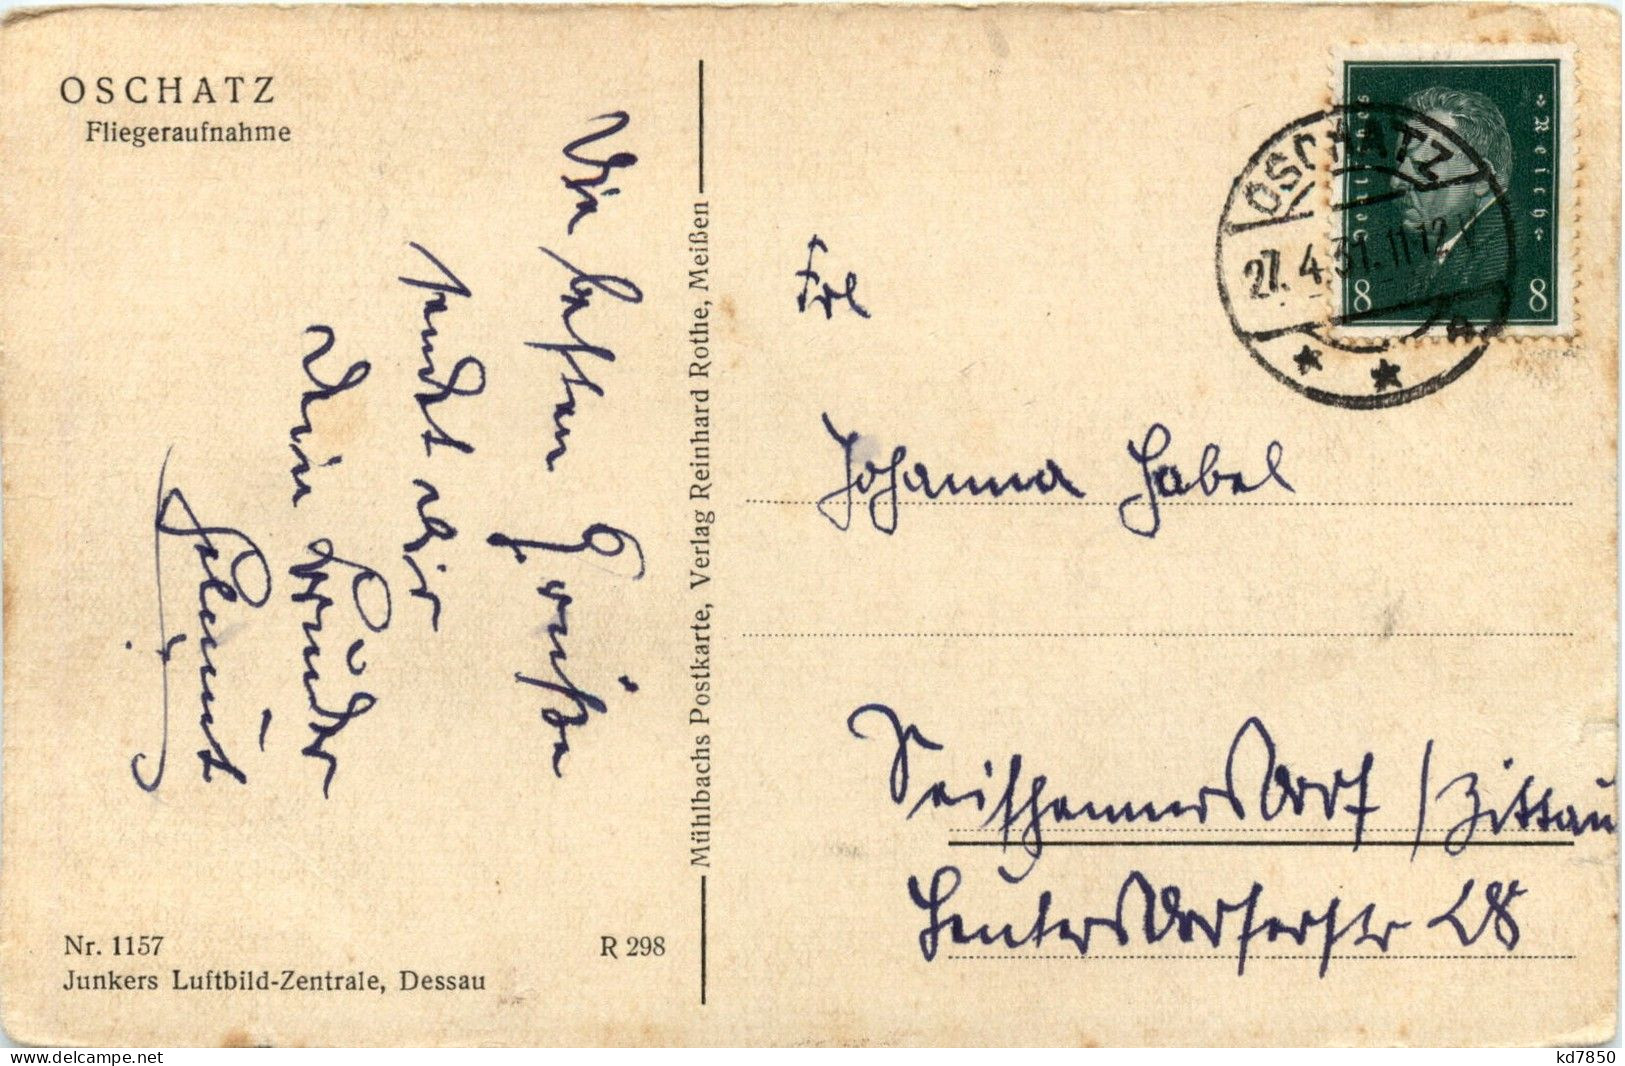 OSCHATZ
Fliegeraufnahme
Die besten Grüße
sendet dir
dein Bruder
Helmut
Mühlbachs Postkarte, Verlag Reinhard Rothe, Meißen
Deutsches Reich
8 8
OSCHATZ
27.4.31.11-12 V
a
Frl
Johanna Habel
Seifhennersdorf / Zittau
Leutersdorferstr 28
Nr. 1157
R 298
Junkers Luftbild-Zentrale, Dessau
kd7850